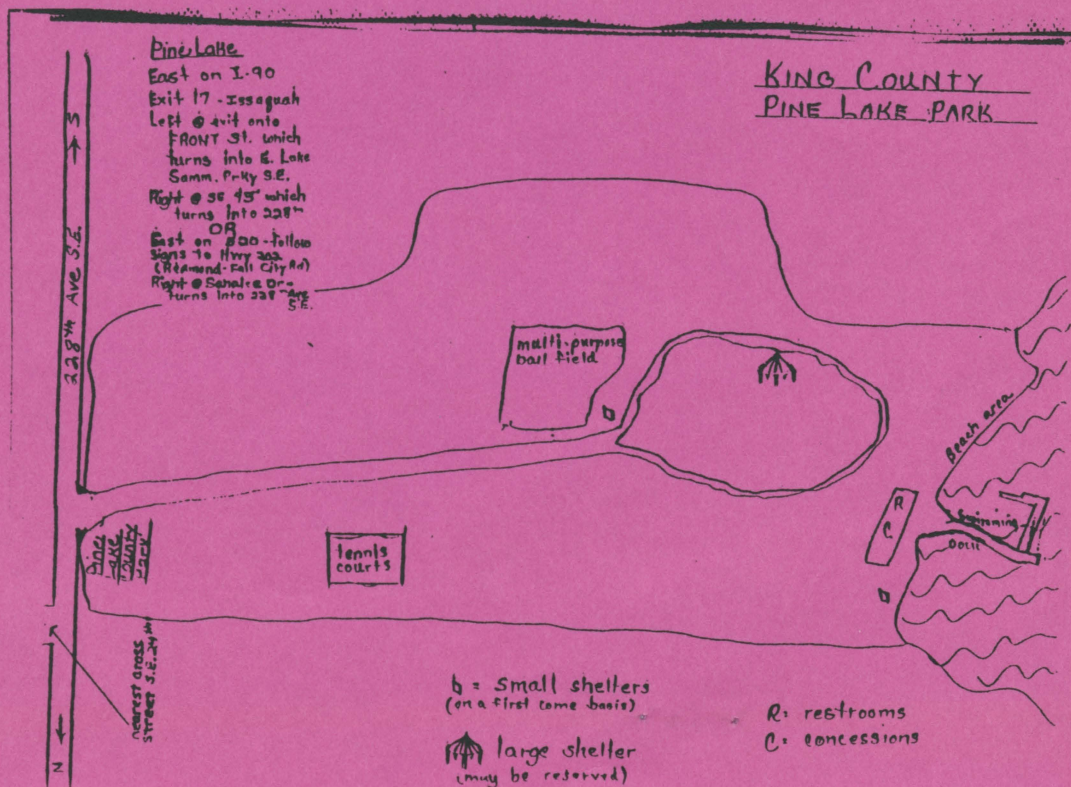 Pine Lake
East on I-90
Exit 17 - Issaquah
Left @ exit onto
FRONT St. which
turns into E. Lake
Samm. Prky S.E.
Right @ SE 43rd which
turns into 228th
OR
East on 520 - follow
signs to Hwy 202
(Redmond-Fall City Rd)
Right @ Sahalee Dr -
turns into 228th Ave
S.E.
KING COUNTY
PINE LAKE PARK
→ S
228th Ave S.E.
multi-purpose
ball field
b
Beach area
R
C
Swimming
Dock
Pine
Lake
County
Park
tennis
courts
b
nearest cross
street S.E. 24th
N
b = small shelters
(on a first come basis)
large shelter
(may be reserved)
R: restrooms
C: concessions